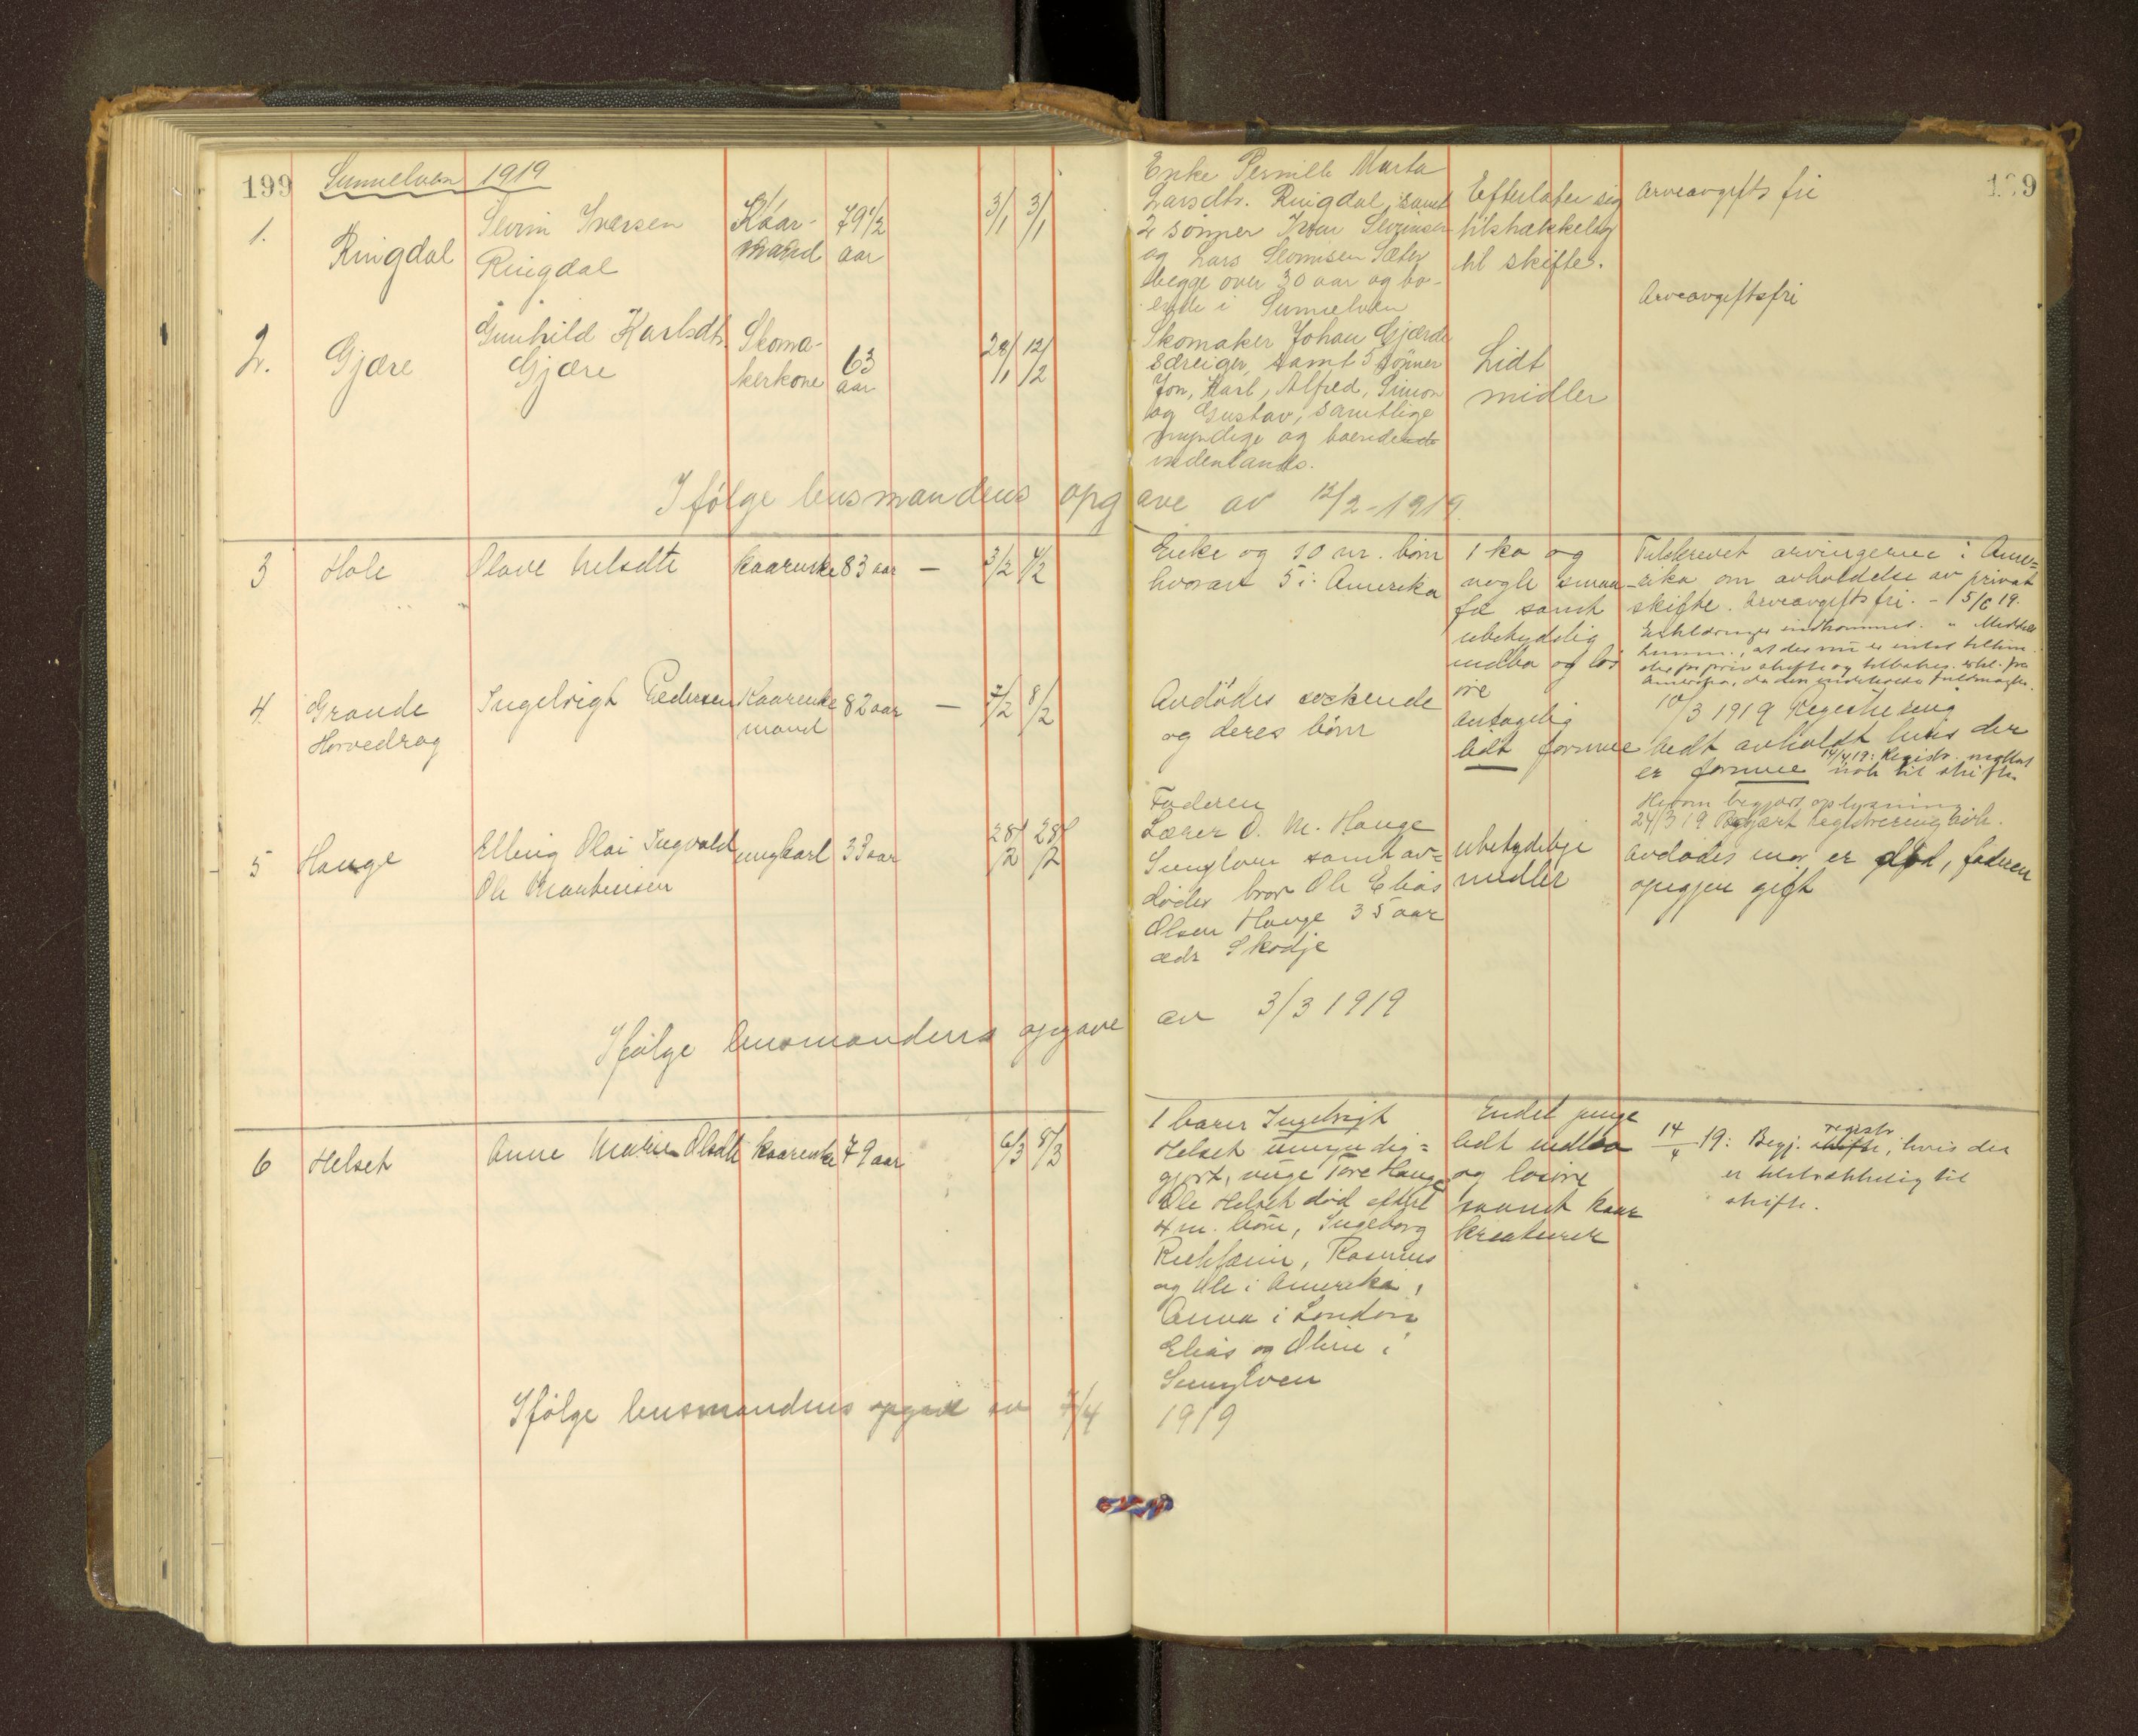 199
Sunnelven 1919
139
1.
Ringdal
Sevrin Iversen
Ringdal
Kaar-
mand
79 1/2
aar
3/1 3/1
Enke Pernille Marta
Larsdtr. Ringdal, samt
2 sönner Iver Sevrinsen
og Lars Sevrinsen Sæter
begge over 30 aar og bo-
ende i Sunnelven
Efterlater sig
tilstrækkelig
til skifte.
Arveavgifts fri
2.
Gjære
Gunhild Karlsdtr.
Gjære
Skoma-
kerkone
63
aar
28/1 12/2
Skomaker Johan Gjærde
særeiger, samt 5 sönner
Jon, Karl, Alfred, Simon
og Gustav, samtlige
myndige og boende
indenlands.
Lidt
midler
Arveavgiftsfri
Ifølge lensmandens opgave av 12/2 - 1919.
3
Hole
Olave Nelsdtr
Kaarenke
83 aar
—
3/2 4/2
Enke og 10 m. börn
hvorav 5 i Amerika
1 ko og
nogle smaa-
fæ samt
ubetydelig
indbo og løs
øre
Tilskrevet arvingerne i Ame=
rika om avholdelse av privat
skifte. Arveavgiftsfri. - 15/6 19.
4.
Grande
Horvedrag
Ingebrigt Pedersen
Kaarenke
mand
82 aar
—
7/2 8/2
Avdødes søskende
og deres börn
antagelig
lidt formue
10/3 1919 Registrering
bedt avholdt hvis der
14/4 19: Registr. mottat
er formue nok til skifte.
5
Hauge
Elling Olai Ingvald
Ole Martinisen
ungkarl
33 aar
28/2 28/2
Faderen
Lærer O. M. Hauge
Sunylven samt av=
dødes bror Ole Elias
Olsen Hauge 35 aar
adr Skodje
ubetydelige
midler
Herom begjært oplysning
24/3 19 Begjært registrering avh.
Avdødes mor er død, faderen
opigjen gift
Ifølge lensmandens opgave av 3/3 1919
6
Helset
Anne Marie Olsdtr
Kaarenke
79 aar
6/3 8/3
1 barn Ingebrigt
Helset umyndig=
gjort, verge Tore Hauge
Ole Helset död efterl
4 m. börn, Ingeborg
Rasmus
og Ole i Amerika,
Anna i London
Elias og Oline i
Sunylven
Endel penge
lidt indbo
og losøre
samt kaar
kreaturer
14/4 19: Begj. skifte registr, hvis der
er tilstrækkelig til
skifte.
Ifølge lensmandens opgave av 7/4 1919